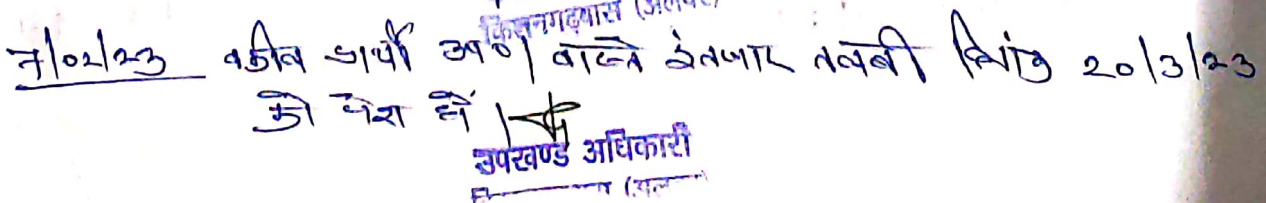 किशनगढ़बास (अलवर)
7/02/23 वकील प्रार्थी उप०। वास्ते इंतजार तलबी दिनांक 20/3/23
को पेश हों।
उपखण्ड अधिकारी